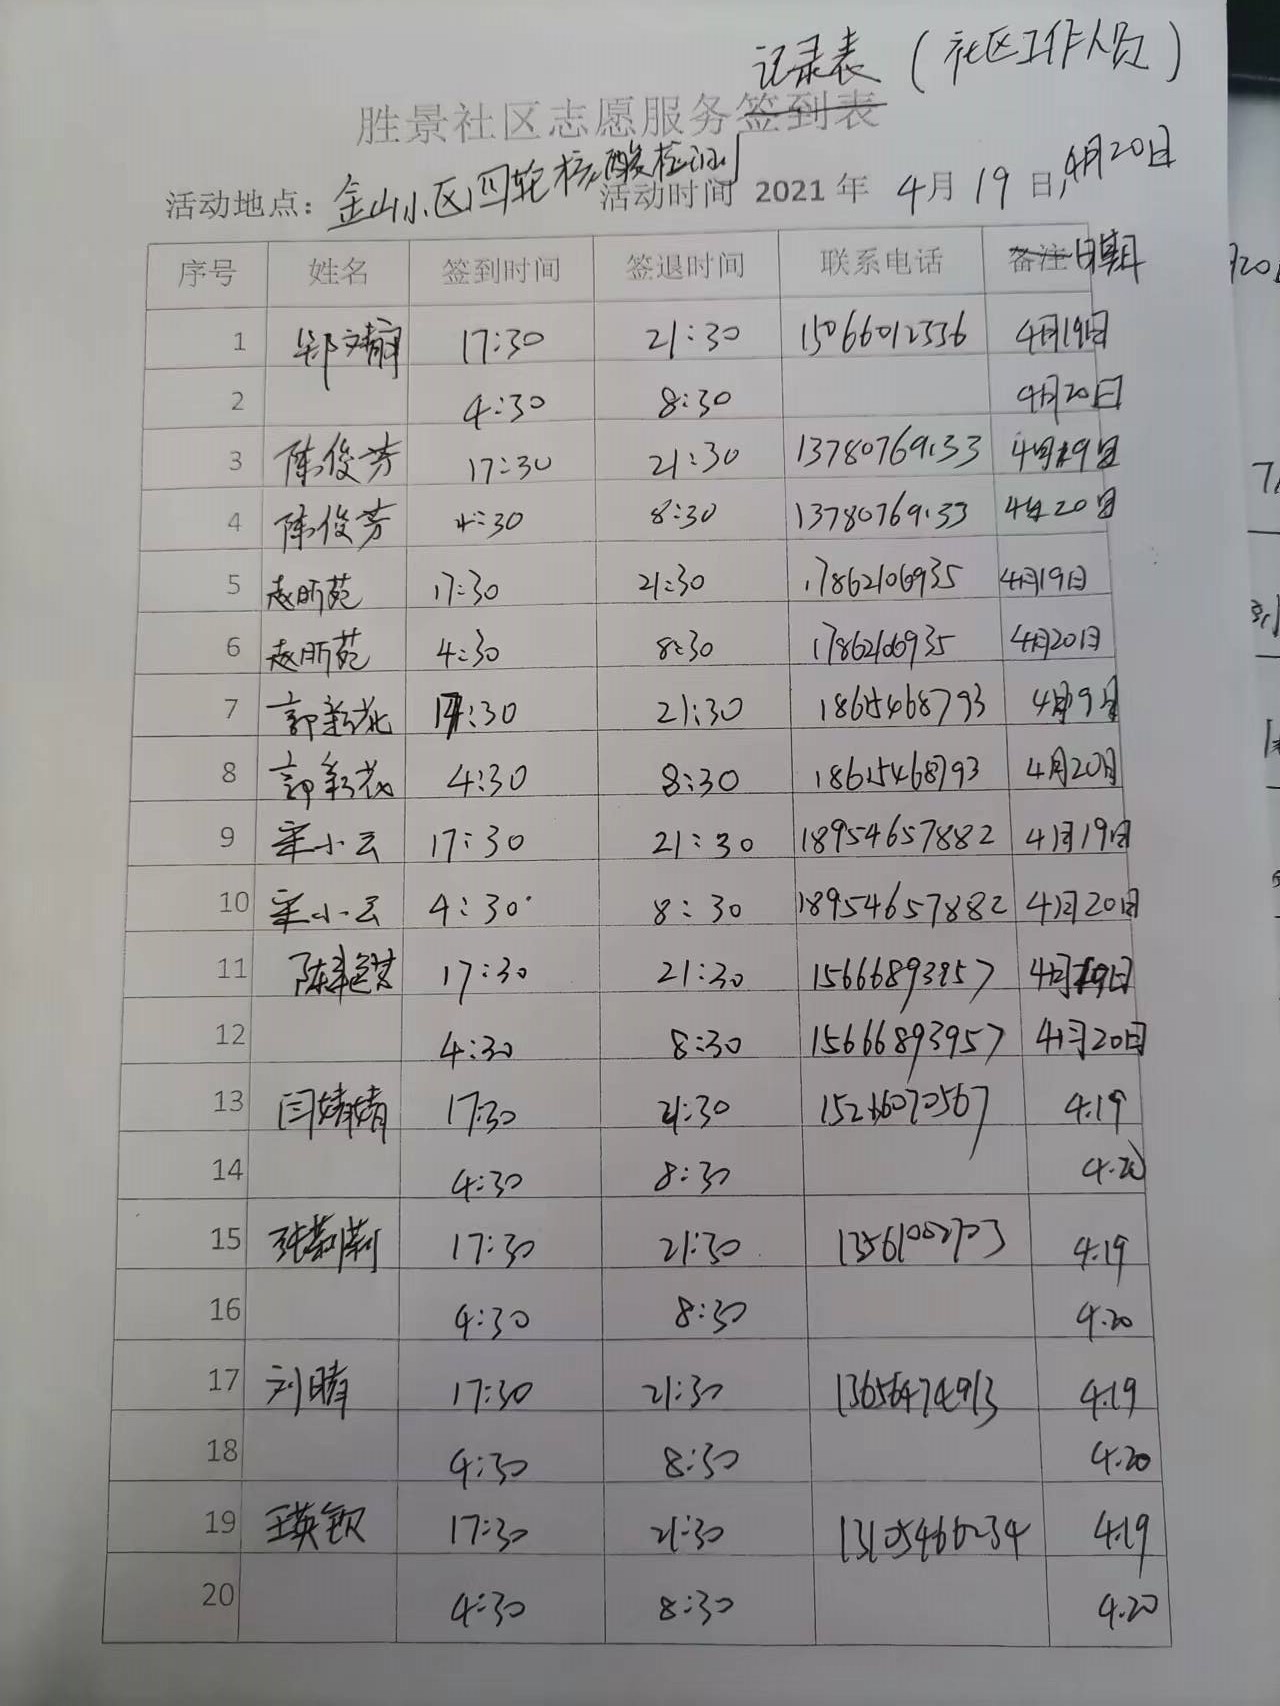 记录表（社区工作人员）
胜景社区志愿服务签到表
活动地点：金山小区四轮核酸检测 活动时间 2021年 4月19日,4月20日
序号 姓名 签到时间 签退时间 联系电话 备注 日期
1 17:30 21:30 15066012336 4月19日
2 4:30 8:30 4月20日
3 陈俊芳 17:30 21:30 13780769133 4月19日
4 陈俊芳 4:30 8:30 13780769133 4月20日
5 赵昕苑 17:30 21:30 17862106935 4月19日
6 赵昕苑 4:30 8:30 17862106935 4月20日
7 17:30 21:30 18615468793 4月19日
8 4:30 8:30 18615468793 4月20日
9 宋小云 17:30 21:30 18954657882 4月19日
10 宋小云 4:30 8:30 18954657882 4月20日
11 17:30 21:30 15666893957 4月19日
12 4:30 8:30 15666893957 4月20日
13 闫婧婧 17:30 21:30 15266070567 4.19
14 4:30 8:30 4.20
15 张莉莉 17:30 21:30 4.19
16 4:30 8:30 4.20
17 刘晴 17:30 21:30 13656474913 4.19
18 4:30 8:30 4.20
19 王英钦 17:30 21:30 13105466234 4.19
20 4:30 8:30 4.20